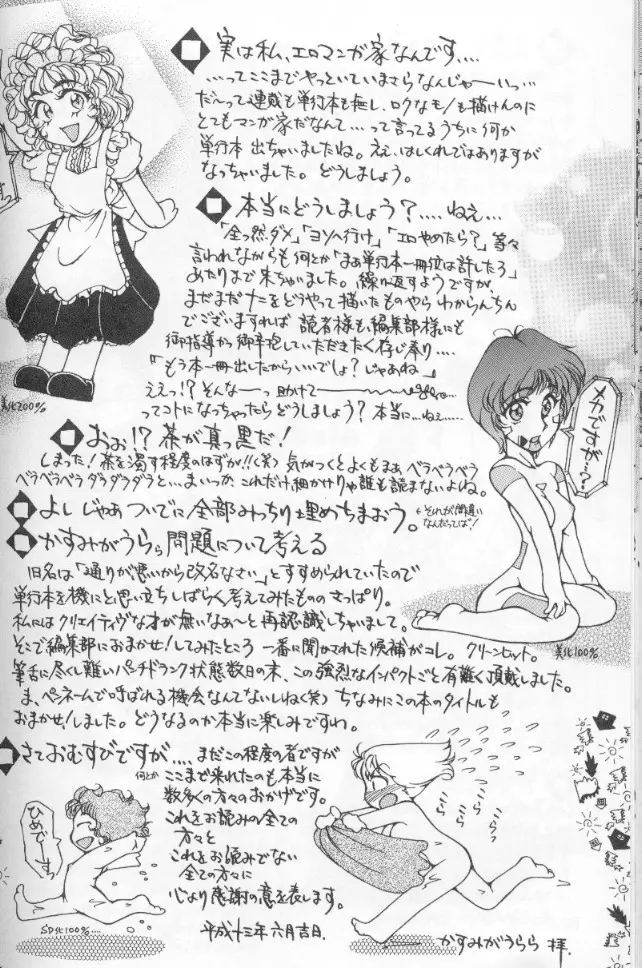 実は私、エロマンガ家なんです....
...ってここまでやっといていまさらなんじゃーいっ...
だ〜って連載も単行本も無し、ロクなモノも描けんのに
とてもマンガ家だなんて...って言ってるうちに何か
単行本 出ちゃいましたね。ええ、はしくれではありますが
なっちゃいました。どうしましょう。
本当にどうしましょう?....ねえ...
「全っ然ダメ」「ヨソへ行け」「エロやめたら?」等々
言われながらも何とか「まぁ単行本一冊位は許したろ」
あたりまで来ちゃいました。繰り返すようですが、
まだまだナニをどうやって描いたものやら わからんちん
でございますれば 読者様も編集部様にも
御指導かつ御辛抱していただきたく存じ奉り....
「もう本一冊出したからいいでしょ?じゃあね」
ええっ!?そんなーっ 助けて
ってコトになっちゃったらどうしましょう?本当に...ねえ.....
美化200%
メカですが...?
おぉ!?茶が真っ黒だ!
しまった!茶を濁す程度のはずが!!(笑) 気がつくとよくもまぁ、ベラベラベラ
ベラベラベラ ダラダラダラと...まいっか、これだけ細かけりゃ誰も読まないよね。
よし じゃあ ついでに全部みっちり埋めちまおう。
←それが間違い
なんだってば!
かすみがうらら問題について考える
旧名は「通りが悪いから改名なさい」とすすめられていたので
単行本を機にと思い立ちしばらく考えてみたものの さっぱり。
私にはクリエイティヴな才が無いなぁ〜と 再認識しちゃいまして。
そこで編集部におまかせ!してみたところ 一番に聞かされた候補がコレ。クリーンヒット。
筆舌に尽くし難いパンチドランク状態数日の末、この強烈なインパクトごと有難く頂戴しました。
ま、ペンネームで呼ばれる機会なんてないしねく笑) ちなみにこの本のタイトルも
おまかせ!しました。どうなるのか本当に楽しみですわ。
美化100%
さておむすびですが.... まだこの程度の者ですが
何とか ここまで来れたのも本当に
数多くの方々のおかげです。
これをお読みの全ての
方々と
これをお読みでない
全ての方々に
心より感謝の意を表します。
平成十三年六月吉日.
かすみがうらら 拝.
ひめです。
SD化100%....
うらら
うらら